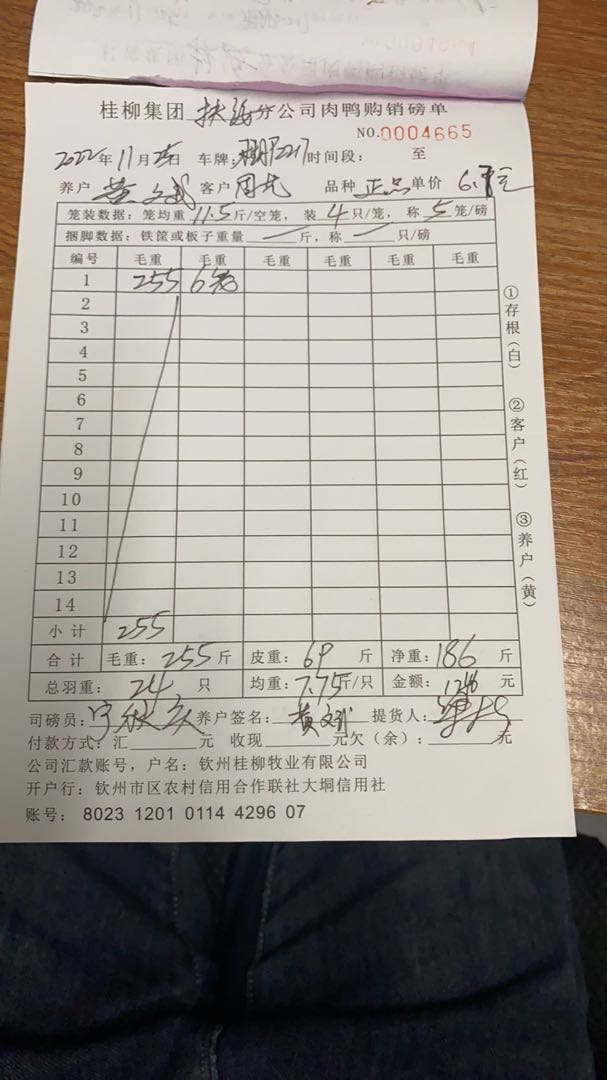 桂柳集团 扶绥分公司肉鸭购销磅单
NO.0004665
2022年11月 日 车牌: 2217时间段: 至
养户 黄文武 客户 周 品种 正品 单价 6. 元
笼装数据: 笼均重 11.5斤/空笼, 装 4只/笼, 称 5笼/磅
捆脚数据: 铁筐或板子重量 斤, 称 只/磅
编号 毛重 毛重 毛重 毛重 毛重 毛重
1 255 6笼
2
3
4
5
6
7
8
9
10
11
12
13
14
小计 255
合计 毛重: 255斤 皮重: 69 斤 净重: 186 斤
总羽重: 24 只 均重: 7.75斤/只 金额: 元
司磅员: 养户签名: 黄文武 提货人:
付款方式: 汇 元 收现 元欠(余): 元
公司汇款账号, 户名: 钦州桂柳牧业有限公司
开户行: 钦州市区农村信用合作联社大垌信用社
账号: 8023 1201 0114 4296 07
①存根(白)
②客户(红)
③养户(黄)